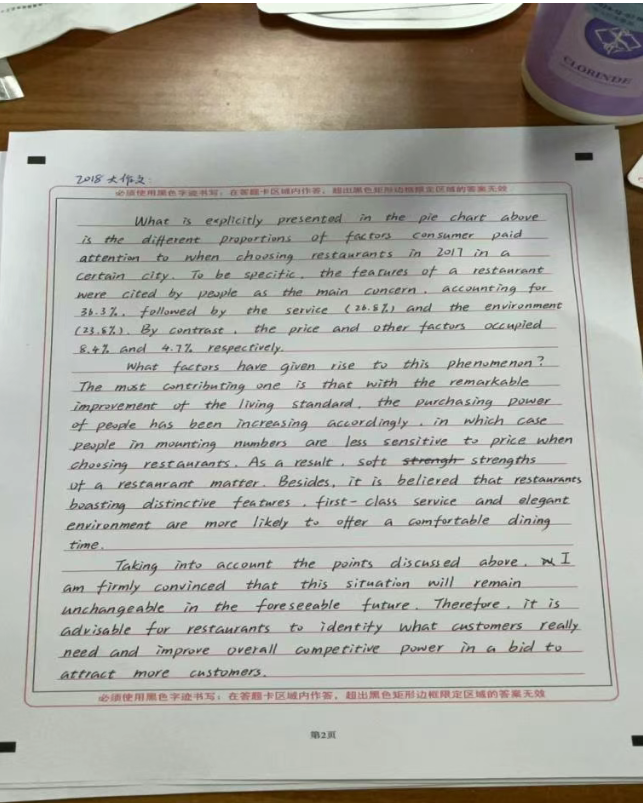 CLORINDE
2018 大作文:
必须使用黑色字迹书写;在答题卡区域内作答,超出黑色矩形边框限定区域的答案无效
What is explicitly presented in the pie chart above
is the different proportions of factors consumer paid
attention to when choosing restaurants in 2017 in a
certain city. To be specific, the features of a restaurant
were cited by people as the main concern, accounting for
36.3%, followed by the service (26.8%) and the environment
(23.8%). By contrast, the price and other factors occupied
8.4% and 4.7% respectively.
What factors have given rise to this phenomenon?
The most contributing one is that with the remarkable
improvement of the living standard, the purchasing power
of people has been increasing accordingly, in which case
people in mounting numbers are less sensitive to price when
choosing restaurants. As a result, soft strengh strengths
of a restaurant matter. Besides, it is believed that restaurants
boasting distinctive features, first-class service and elegant
environment are more likely to offer a comfortable dining
time.
Taking into account the points discussed above, I
am firmly convinced that this situation will remain
unchangeable in the foreseeable future. Therefore, it is
advisable for restaurants to identity what customers really
need and improve overall competitive power in a bid to
attract more customers.
必须使用黑色字迹书写;在答题卡区域内作答,超出黑色矩形边框限定区域的答案无效
第2页